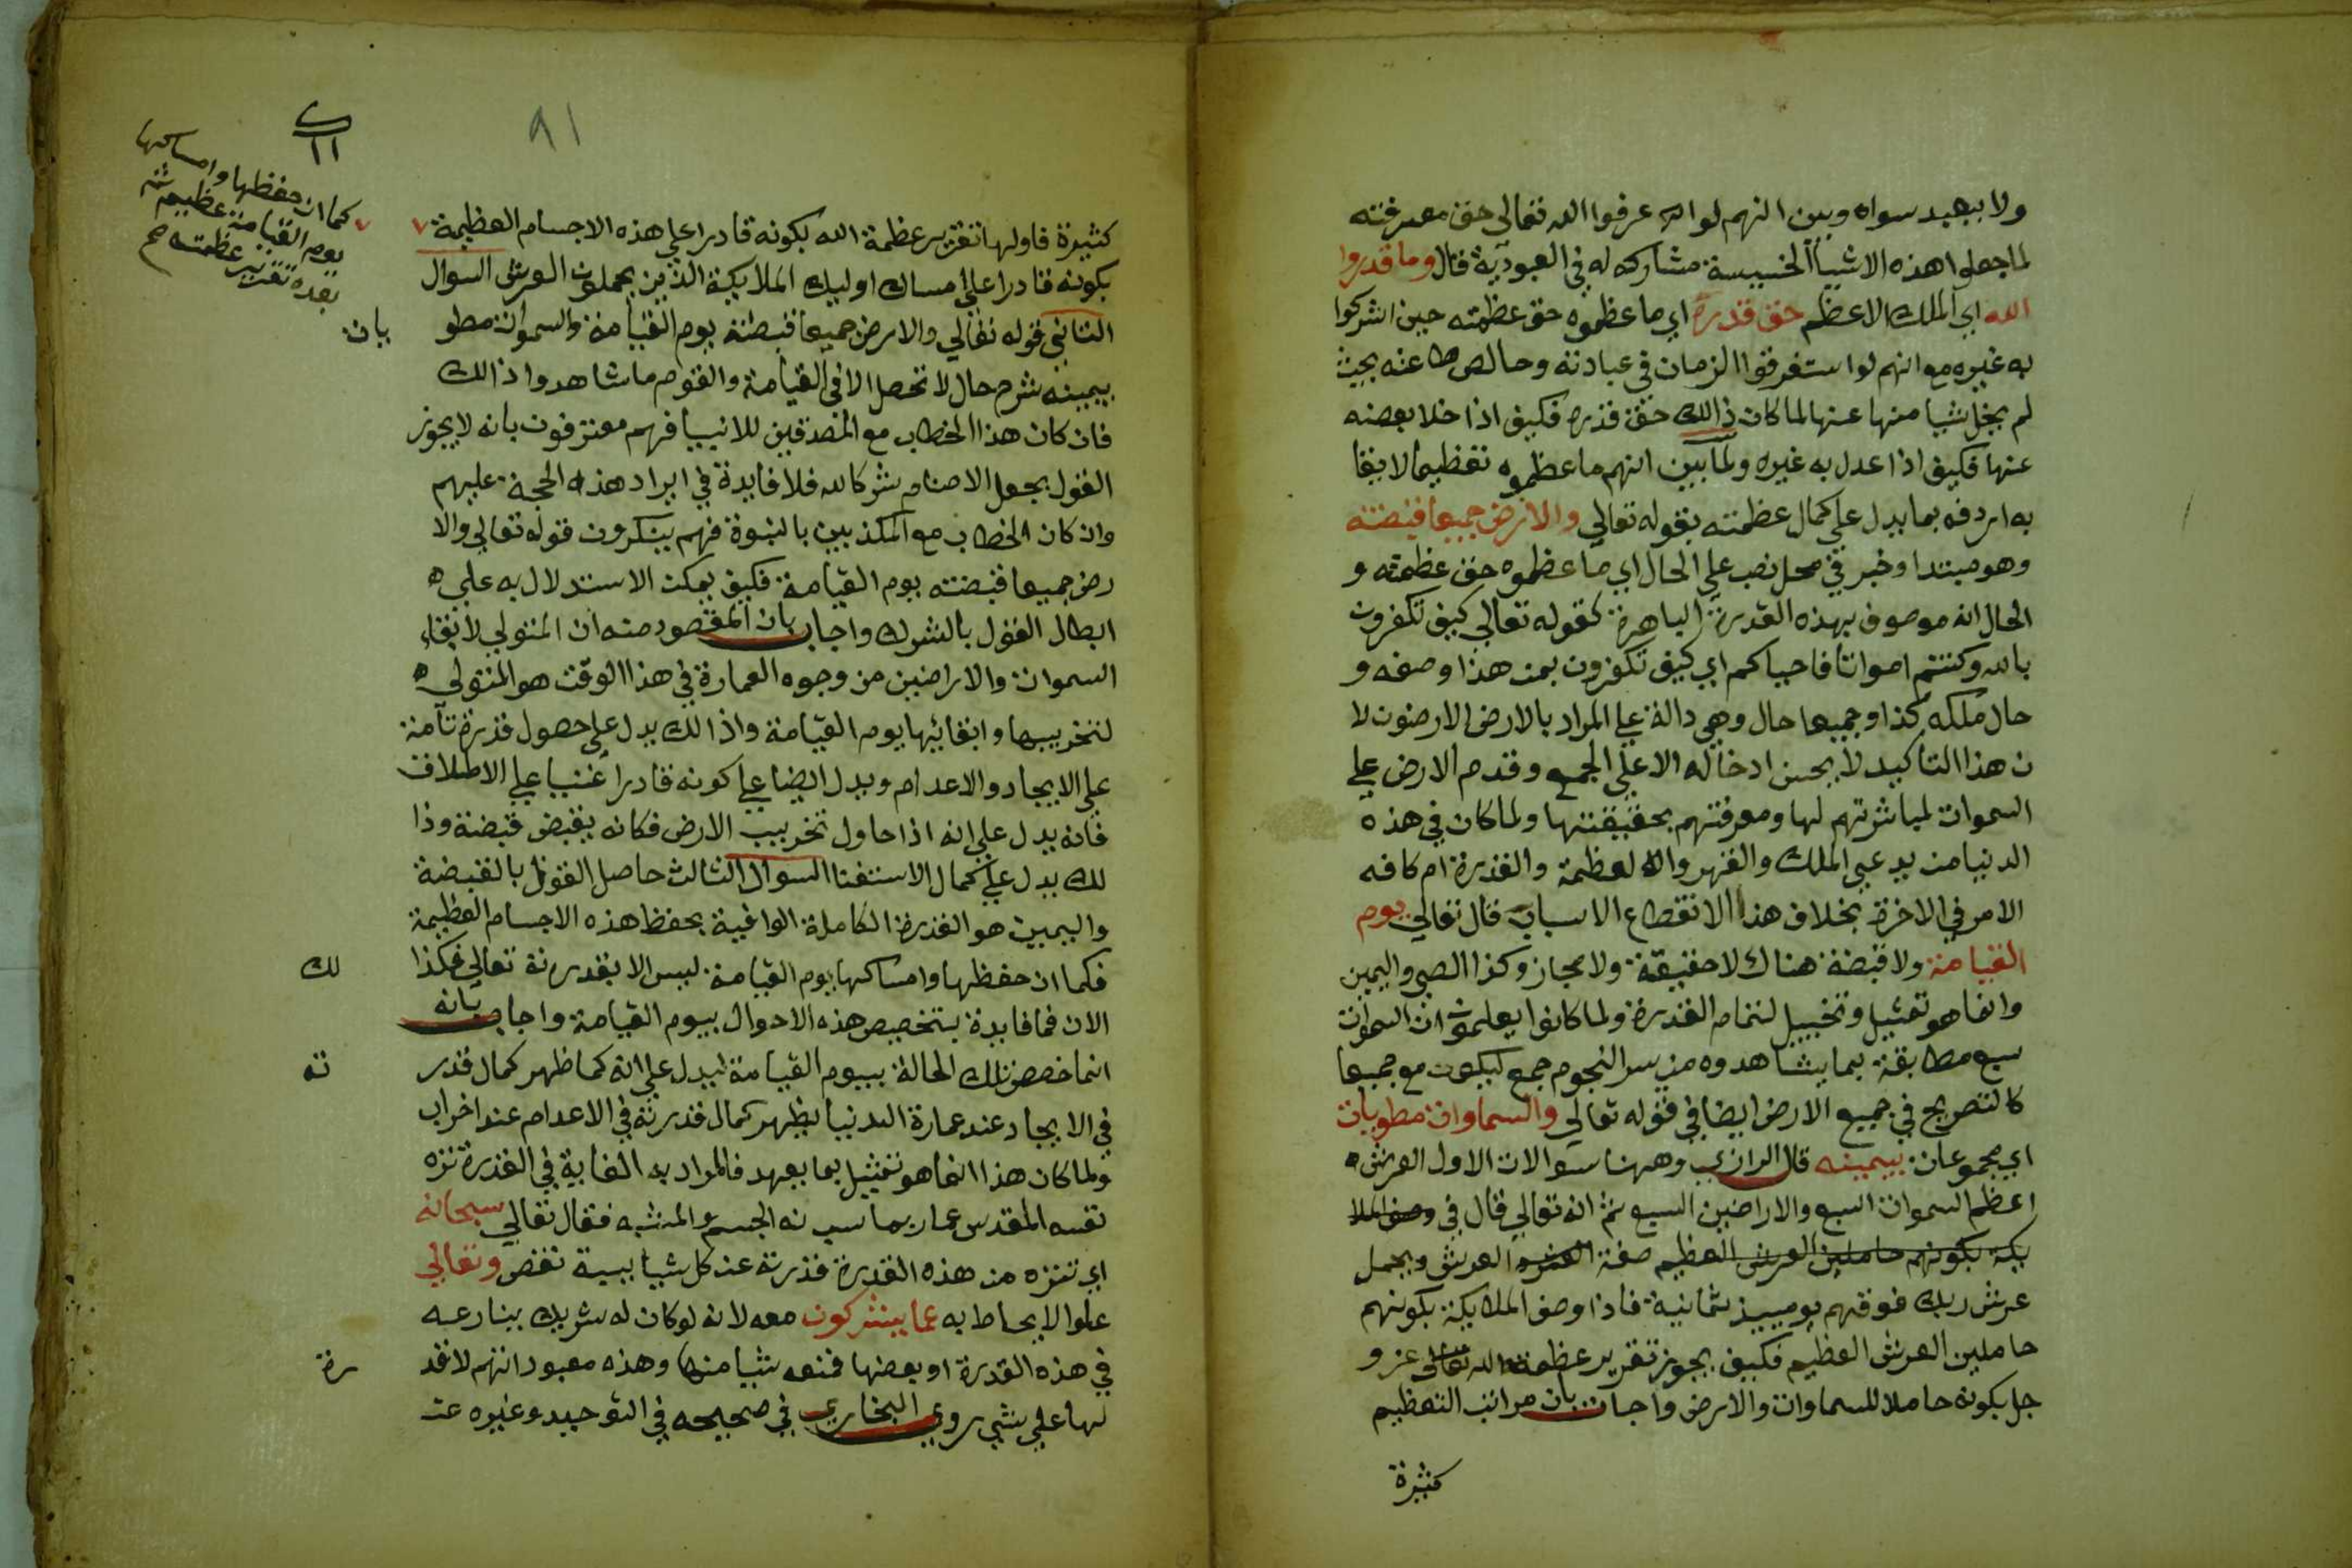 ولا يعبد سواه وبين انهم لو انهم عرفوا الله تعالى حق معرفته
لما جعلوا هذه الاشياء الخسيسة مشاركه له في العبودية قال وما قدروا
الله اي الملك الاعظم حق قدره اي ما عظموه حق عظمته حين اشركوا
به غيره مع انهم لو استغرقوا الزمان في عبادته وخالص طاعته بحيث
لم يخل شيا منها عنها لما كان ذالك حق قدره فكيف اذا خلا بعضه
عنها فكيف اذا عدل به غيره ولما بين انهم ما عظموه تعظيما لايقا
به اردفه بما يدل على كمال عظمته بقوله تعالي والارض جميعا قبضته
وهو مبتدا وخبر في محل نصب علي الحال اي ما عظموه حق عظمته و
الحال انه موصوف بهذه القدرة الباهرة كقوله تعالي كيف تكفرون
بالله وكنتم امواتا فاحياكم اي كيف تكفرون بمن هذا وصفه و
حال ملكه كذا وجميعا حال وهي دالة علي المراد بالارض الارضون لا
ن هذا التاكيد لا يحسن ادخاله الا علي الجمع وقدم الارض علي
السموات لمباشرتهم لها ومعرفتهم بحقيقتها ولما كان في هذه
الدنيا من يدعي الملك والقهر والعظمة والقدرة ام كافه
الامر في الاخرة بخلاف هذا الانقطاع الاسباب قال تعالي يوم
القيامة ولا قبضة هناك لا حقيقة ولا مجاز وكذا الطي واليمين
وانما هو تمثيل وتخييل لتمام القدرة ولما كانوا يعلمون ان السموات
سبع مطابقة بما يشاهدوه من سير النجوم جمع ليكون مع جميعا
كالتصريح في جميع الارض ايضا في قوله تعالي والسماوات مطويات
اي مجموعات بيمينه قال الرازي وههنا سوالات الاول العرش
اعظم السموات السبع والاراضين السبع ثم انه تعالي قال في وصف الملا
يكة بكونهم حاملين العرش العظيم صفة العرش ويحمل
عرش ربك فوقهم يوميذ ثمانية فاذا وصف الملايكة بكونهم
حاملين العرش العظيم فكيف يجوز تقرير عظمة الله تعالى عز و
جل بكونه حاملا للسماوات والارض واجاب بان مراتب التعظيم
كثيرة
٩١
كثيرة فاولها تقرير عظمة الله بكونه قادرا علي هذه الاجسام العظيمة
كما ان حفظها وامساكها
يوم القيامة عظيمة ثم
بعده تقرير عظمته صح
بكونه قادرا علي امساك اوليك الملايكة الذين يحملون العرش السوال
الثاني قوله تعالي والارض جميعا قبضته يوم القيامة والسموات مطو
يات
بيمينه شرح حال لا تحصل الا في القيامة والقوم ما شاهدوا ذالك
فان كان هذا الخطاب مع المصدقين للانبيا فهم معترفون بانه لا يجوز
القول بجعل الاصنام شركا لله فلا فايدة في ايراد هذه الحجة عليهم
وان كان الخطاب مع المكذبين بالنبوة فهم ينكرون قوله تعالي والا
رض جميعا قبضته يوم القيامة فكيف يمكن الاستدلال به علي
ابطال القول بالشرك واجاب بان المقصود منه ان المتولي لابقاء
السموات والاراضين من وجوه العمارة في هذا الوقت هو المتولي
لتخريبها وابقائها يوم القيامة واذالك يدل علي حصول قدرة تآمة
علي الايجاد والاعدام ويدل ايضا علي كونه قادرا غنيا علي الاطلاق
فانه يدل علي انه اذا حاول تخريب الارض فكانه يقبض قبضة وذا
لك يدل علي كمال الاستغنا السوال الثالث حاصل القول بالقبضة
واليمين هو القدرة الكاملة الوافية بحفظ هذه الاجسام العظيمة
فكما ان حفظها وامساكها يوم القيامة ليس الا بقدرته تعالي فكذا
لك
الان فما فايدة بتخصيص هذه الاحوال بيوم القيامة واجاب بانه
انما خصص تلك الحالة بيوم القيامة ليدل علي انه كما ظهر كمال قدر
ته
في الايجاد عند عمارة الدنيا يظهر كمال قدرته في الاعدام عند اخراب
ولما كان هذا انما هو تمثيل بما يعهد فالمراد به الغاية في القدرة نزه
نفسه المقدس عما ربما الجسم والمشبه فقال تعالي سبحانه
اي تنزه من هذه القدرة قدرته عن كل شيا نقص وتعالي
علوا لا يحاط به عما يشركون معه لانه لو كان له شريك ينازعه
في هذه القدرة او بعضها فمنعه شيا منها وهذه معبوداتهم لا قد
رة
لها علي شي روي البخاري في صحيحه في التوحيد وغيره عن